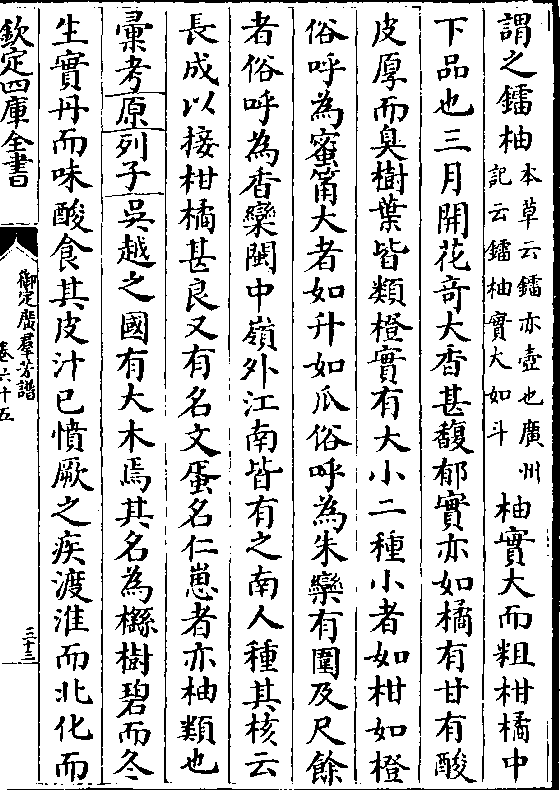 謂之鐳柚本草云鐳亦壺也廣州記云鐳柚實大如斗柚實大而粗柑橘中
下品也三月開花竒大香甚馥郁實亦如橘有甘有酸
皮厚而臭樹葉皆類橙實有大小二種小者如柑如橙
俗呼為蜜筩大者如升如瓜俗呼為朱欒有圍及尺餘
者俗呼為香欒閩中嶺外江南皆有之南人種其核云
長成以接柑橘甚良又有名文蛋名仁崽者亦柚類也
彚考原列子吳越之國有大木焉其名為櫾樹碧而冬
生實丹而味酸食其皮汁已憤厥之疾渡淮而北化而
欽定四庫全書
御定廣羣芳譜
卷六十五
三十三